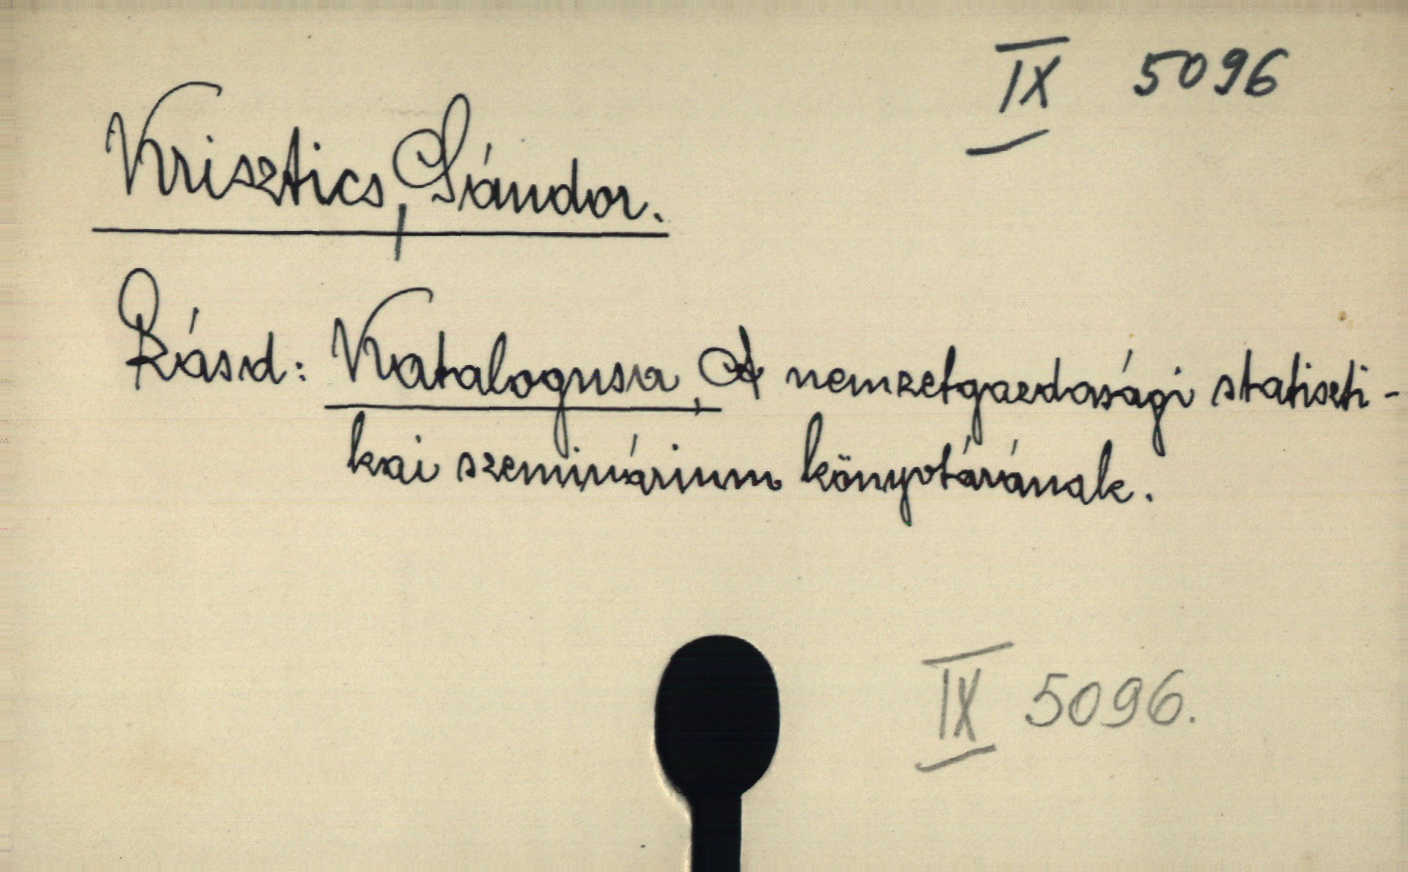 IX 5096
Krisztics, Sándor.
Lásd: Katalogusa, A nemzetgazdasági statiszti-
kai szeminárium könyvtárának.
IX 5096.